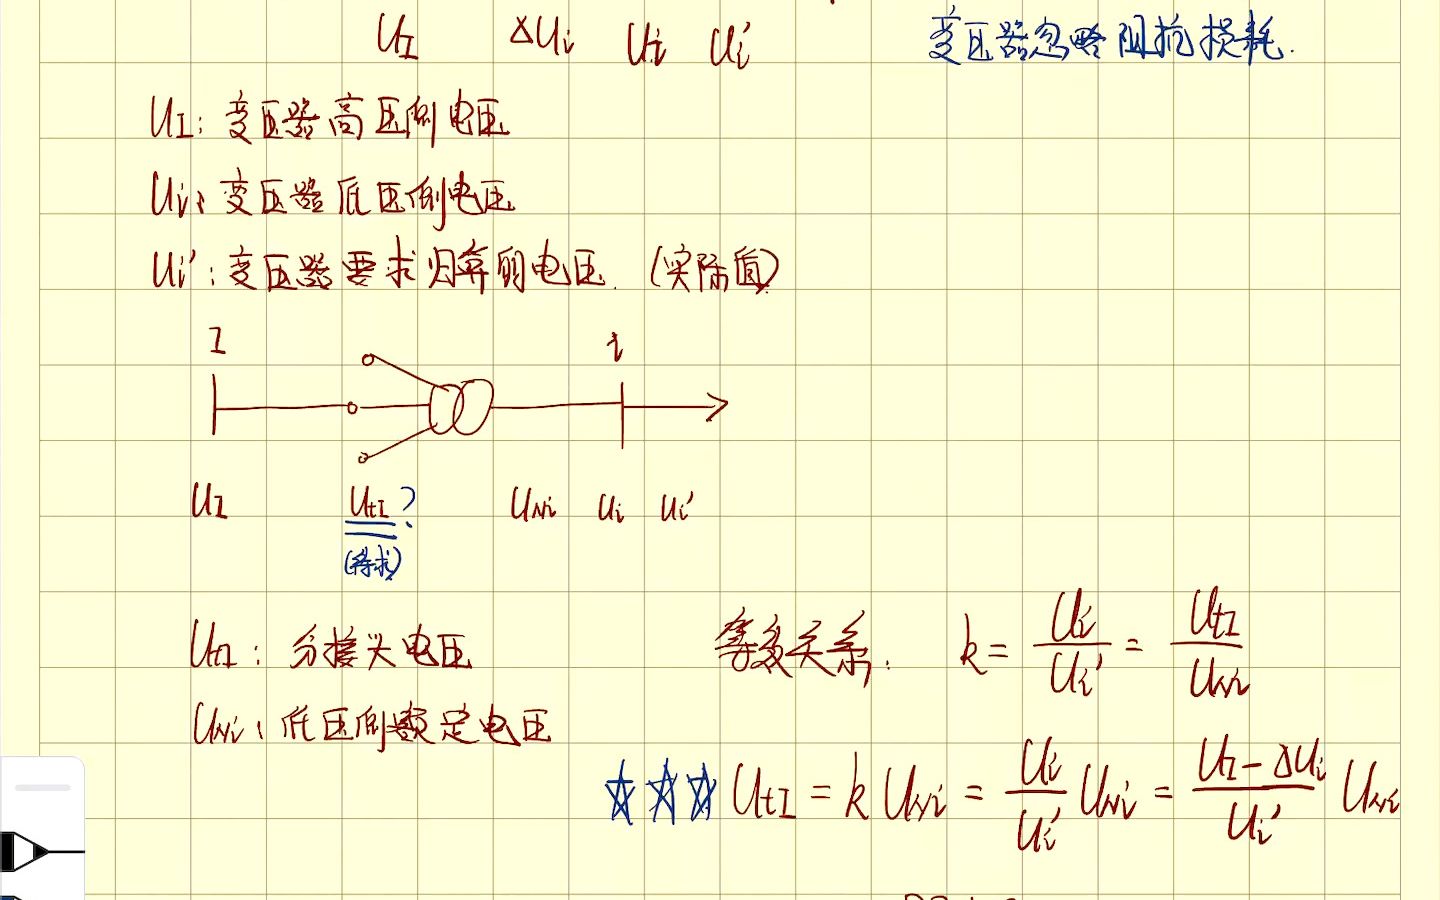 U_I ΔU_i U_i U_i' 变压器忽略阻抗损耗.
U_I: 变压器高压侧电压
U_i: 变压器低压侧电压
U_i': 变压器要求归算的电压. (实际值)
I i
U_I U_tI? U_Ni U_i U_i'
(待求)
U_tI: 分接头电压
U_Ni: 低压侧额定电压
等变关系: k = U_i / U_i' = U_tI / U_Ni
☆☆☆ U_tI = k U_Ni = U_i / U_i' U_Ni = (U_I - ΔU_i) / U_i' U_Ni